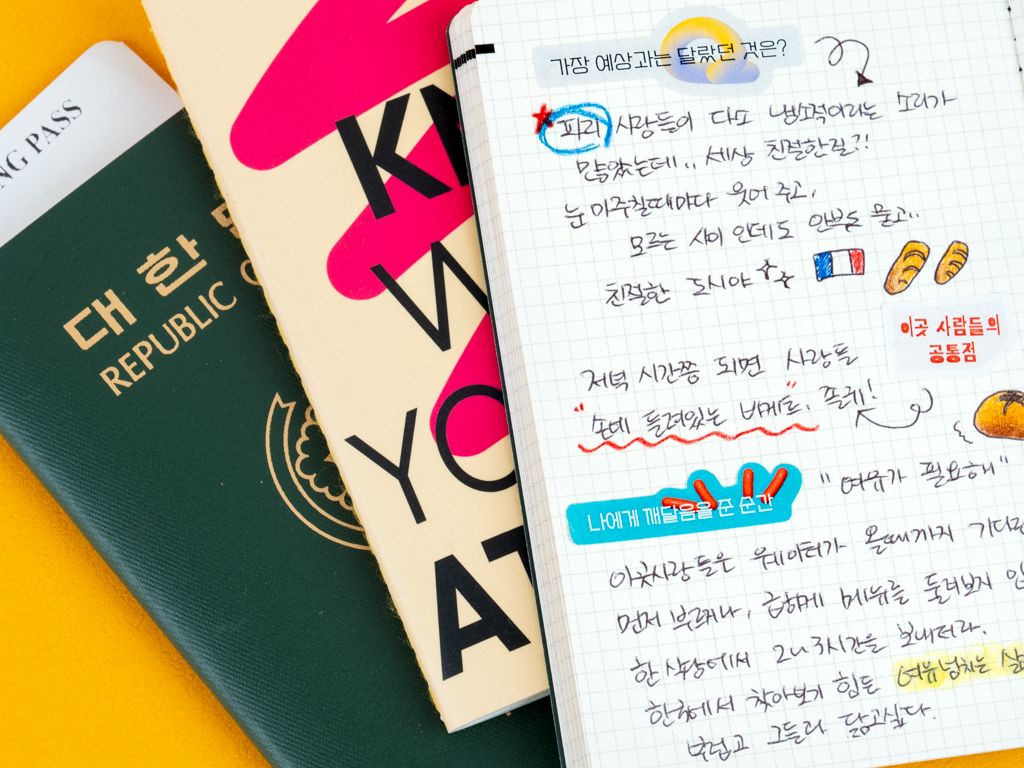 NG PASS
대한
REPUBLIC
K
YO
AT
가장 예상과는 달랐던 것은?
파리 사람들이 다소 냉소적이라는 소리가
많았는데.. 세상 친절한걸?!
눈 마주칠때마다 웃어 주고,
모르는 사이 인데도 안부도 묻고..
친절한 도시야
이곳 사람들의
공통점
저녁 시간쯤 되면 사람들
"손에 들려있는 바게트", 플레!
"여유가 필요해"
나에게 깨달음을 준 순간
이곳사람들은 웨이터가 올때까지 기다리
먼저 부르거나, 급하게 메뉴를 둘러보지 않
한 식당에서 2~3시간을 보내더라.
한국에서 찾아보기 힘든 여유넘치는 삶
부럽고 그들과 닮고싶다.